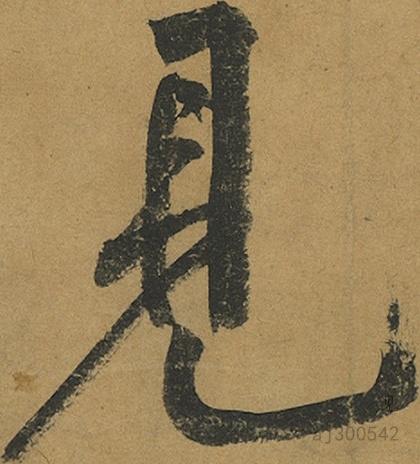 見
aj300542